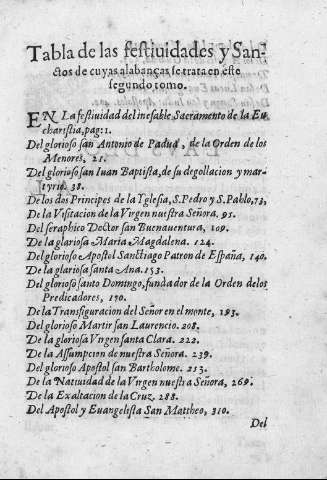 Tabla de las festiuidades y San-
ctos de cuyas alabanças se trata en este
segundo tomo.
EN La festiuidad del inefable Sacramento de la Eu-
charistia, pag: 1.
Del glorioso san Antonio de Padua, de la Orden de los
Menores, 21.
Del glorioso san Iuan Baptista, de su degollacion y mar-
tyrio. 38.
De los dos Principes de la Yglesia, S. Pedro y S. Pablo, 73,
De la Visitacion de la Virgen nuestra Señora, 95.
Del seraphico Doctor san Buenauentura, 109.
De la glariosa Maria Magdalena. 124.
Del glorioso Apostol Sanctiago Patron de España, 140.
De la glariosa santa Ana. 153.
Del glorioso santo Domingo, fundador de la Orden delos
Predicadores, 170.
De la Transfiguracion del Señor en el monte, 193.
Del glorioso Martir san Laurencio. 208.
De la gloriosa Virgen santa Clara. 222.
De la Assumpcion de nuestra Señora. 239.
Del glorioso Apostol san Bartholome. 213.
De la Natiuidad de la Virgen nuestra Señora, 269.
De la Exaltacion de la Cruz. 288.
Del Apostol y Euangelista San Mattheo, 310.
Del